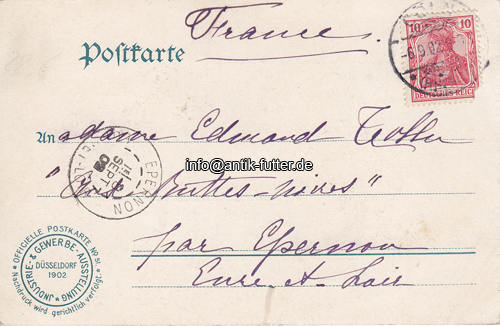 France.
Postkarte
10 10
DEUTSCHES REICH
6.9.02
An
Madame Edmond
info@antik-futter.de
EPERNON
SEPT
02
"Buttes-noires"
par Epernon
Eure-et-Loir
OFFICIELLE POSTKARTE No
INDUSTRIE- & GEWERBE-AUSSTELLUNG
DÜSSELDORF
1902
Nachdruck wird gerichtlich verfolgt.